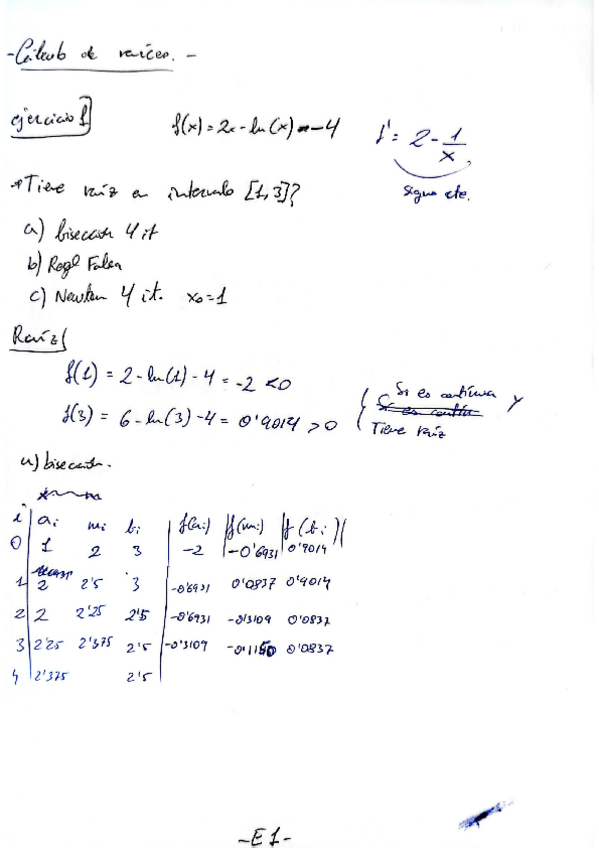 -Cálculo de raíces.-
ejercicio 1
f(x) = 2x - ln(x) - 4
f' = 2 - 1/x,
signo cte.
*Tiene raíz en intervalo [1,3]?
a) bisección 4 it
b) Regl Falsa
c) Newton 4 it. x₀=1
Raíz
f(1) = 2 - ln(1) - 4 = -2 <0
f(3) = 6 - ln(3) - 4 = 0'9014 >0
Si es continua y
Tiene raíz
a) bisección.
i aᵢ mᵢ bᵢ f(aᵢ) f(mᵢ) f(bᵢ)
0 1 2 3 -2 -0'6931 0'9014
1 2 2'5 3 -0'6931 0'0837 0'9014
2 2 2'25 2'5 -0'6931 -0'3109 0'0837
3 2'25 2'375 2'5 -0'3109 -0'1150 0'0837
4 2'375 2'5
-E1-